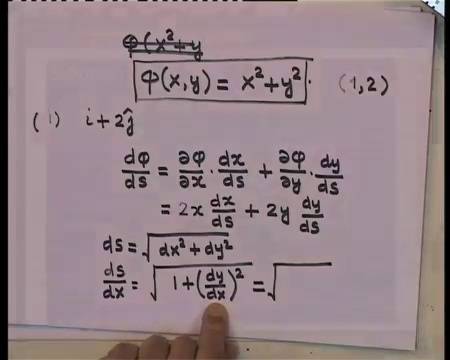 φ(x²+y
φ(x,y) = x²+y². (1,2)
(1) i+2ĵ
dφ/ds = ∂φ/∂x · dx/ds + ∂φ/∂y · dy/ds
= 2x dx/ds + 2y dy/ds
ds = √(dx²+dy²)
ds/dx = √(1+(dy/dx)²) = √